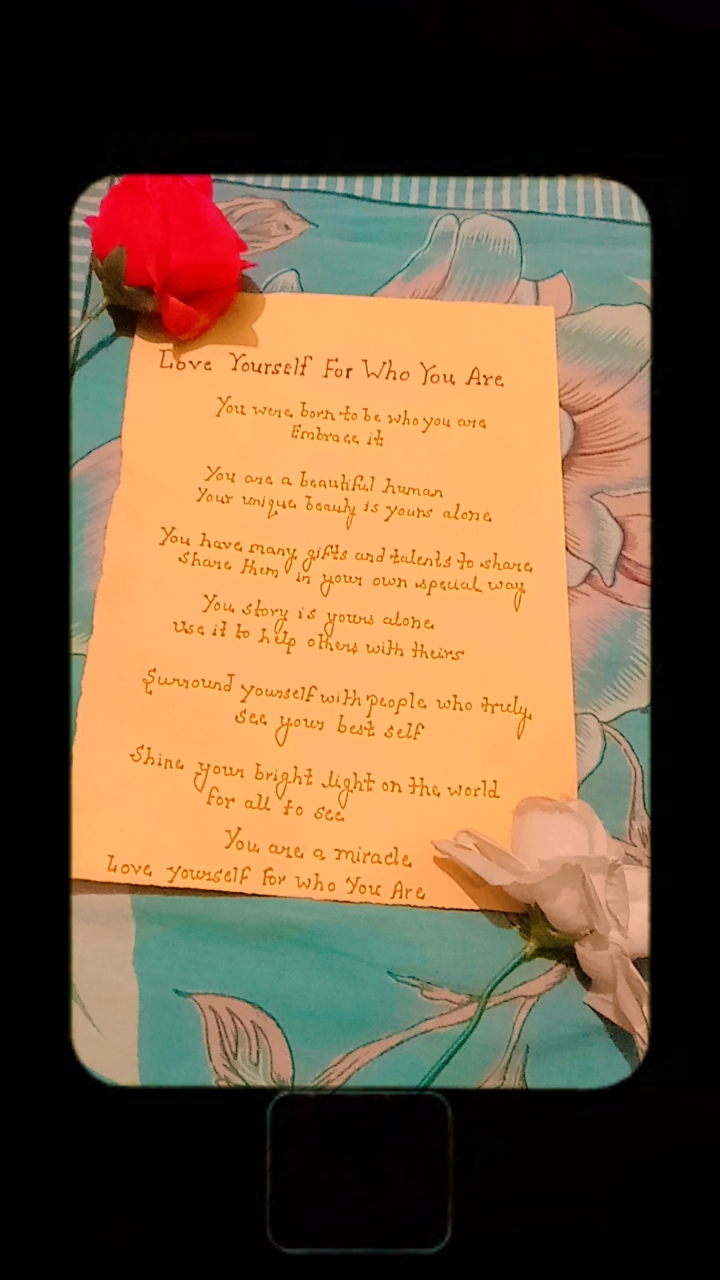 Love Yourself For Who You Are
You were born to be who you are
Embrace it
You are a beautiful human
Your unique beauty is yours alone
You have many gifts and talents to share
Share them in your own special way
You story is yours alone
Use it to help others with theirs
Surround yourself with people who truly
see your best self
Shine your bright light on the world
for all to see
You are a miracle
Love yourself For who You Are